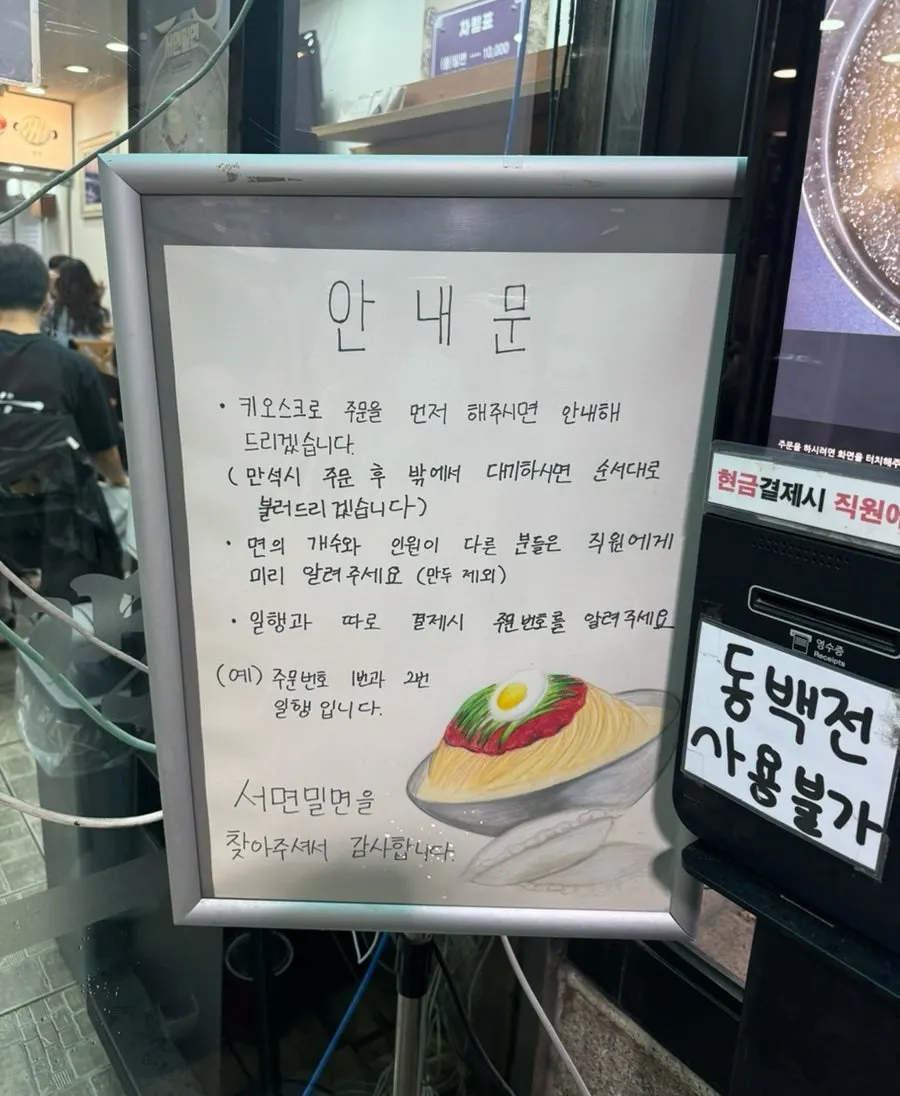 차림표
10,000
서면밀면
안내문
• 키오스크로 주문을 먼저 해주시면 안내해
드리겠습니다.
(만석시 주문 후 밖에서 대기하시면 순서대로
불러드리겠습니다)
• 면의 개수와 인원이 다른 분들은 직원에게
미리 알려주세요 (만두 제외)
• 일행과 따로 결제시 주문번호를 알려주세요
(예) 주문번호 1번과 2번
일행입니다.
서면밀면을
찾아주셔서 감사합니다.
주문을 하시려면 화면을 터치해주
현금결제시 직원에
영수증
Receipts
동백전
사용불가